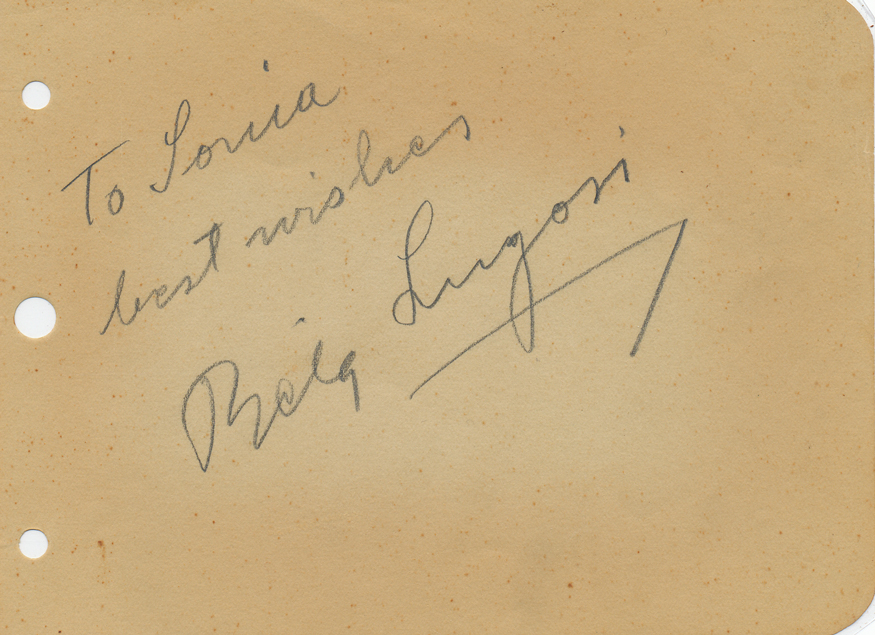 To Sonia
best wishes
Béla Lugosi